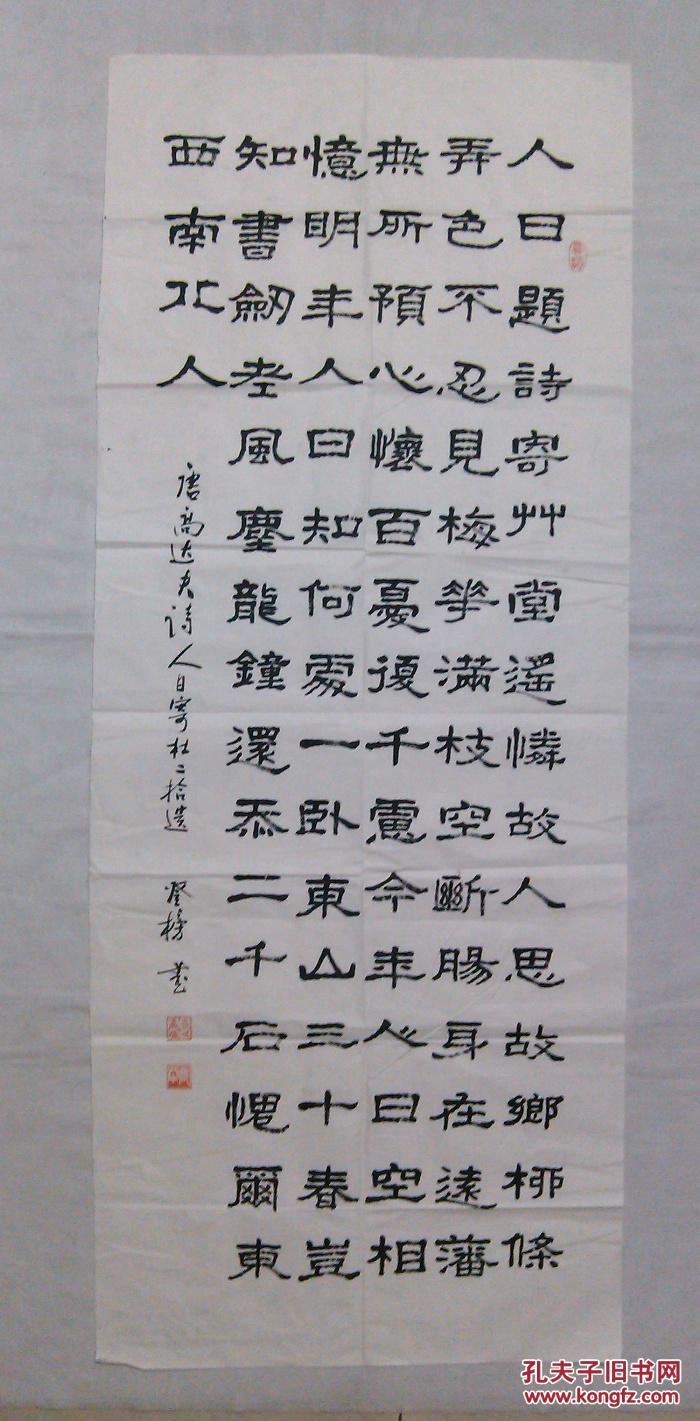 人日題詩寄艸堂遥憐故人思故鄉柳條
弄色不忍見梅花滿枝空斷腸身在遠藩
無所預心懷百憂復千慮今年人日空相
憶明年人日知何處一卧東山三十春豈
知書劒老風塵龍鐘還忝二千石愧爾東
西南北人
唐高达夫詩人日寄杜二拾遺 登榜 書
孔夫子旧书网
www.kongfz.com